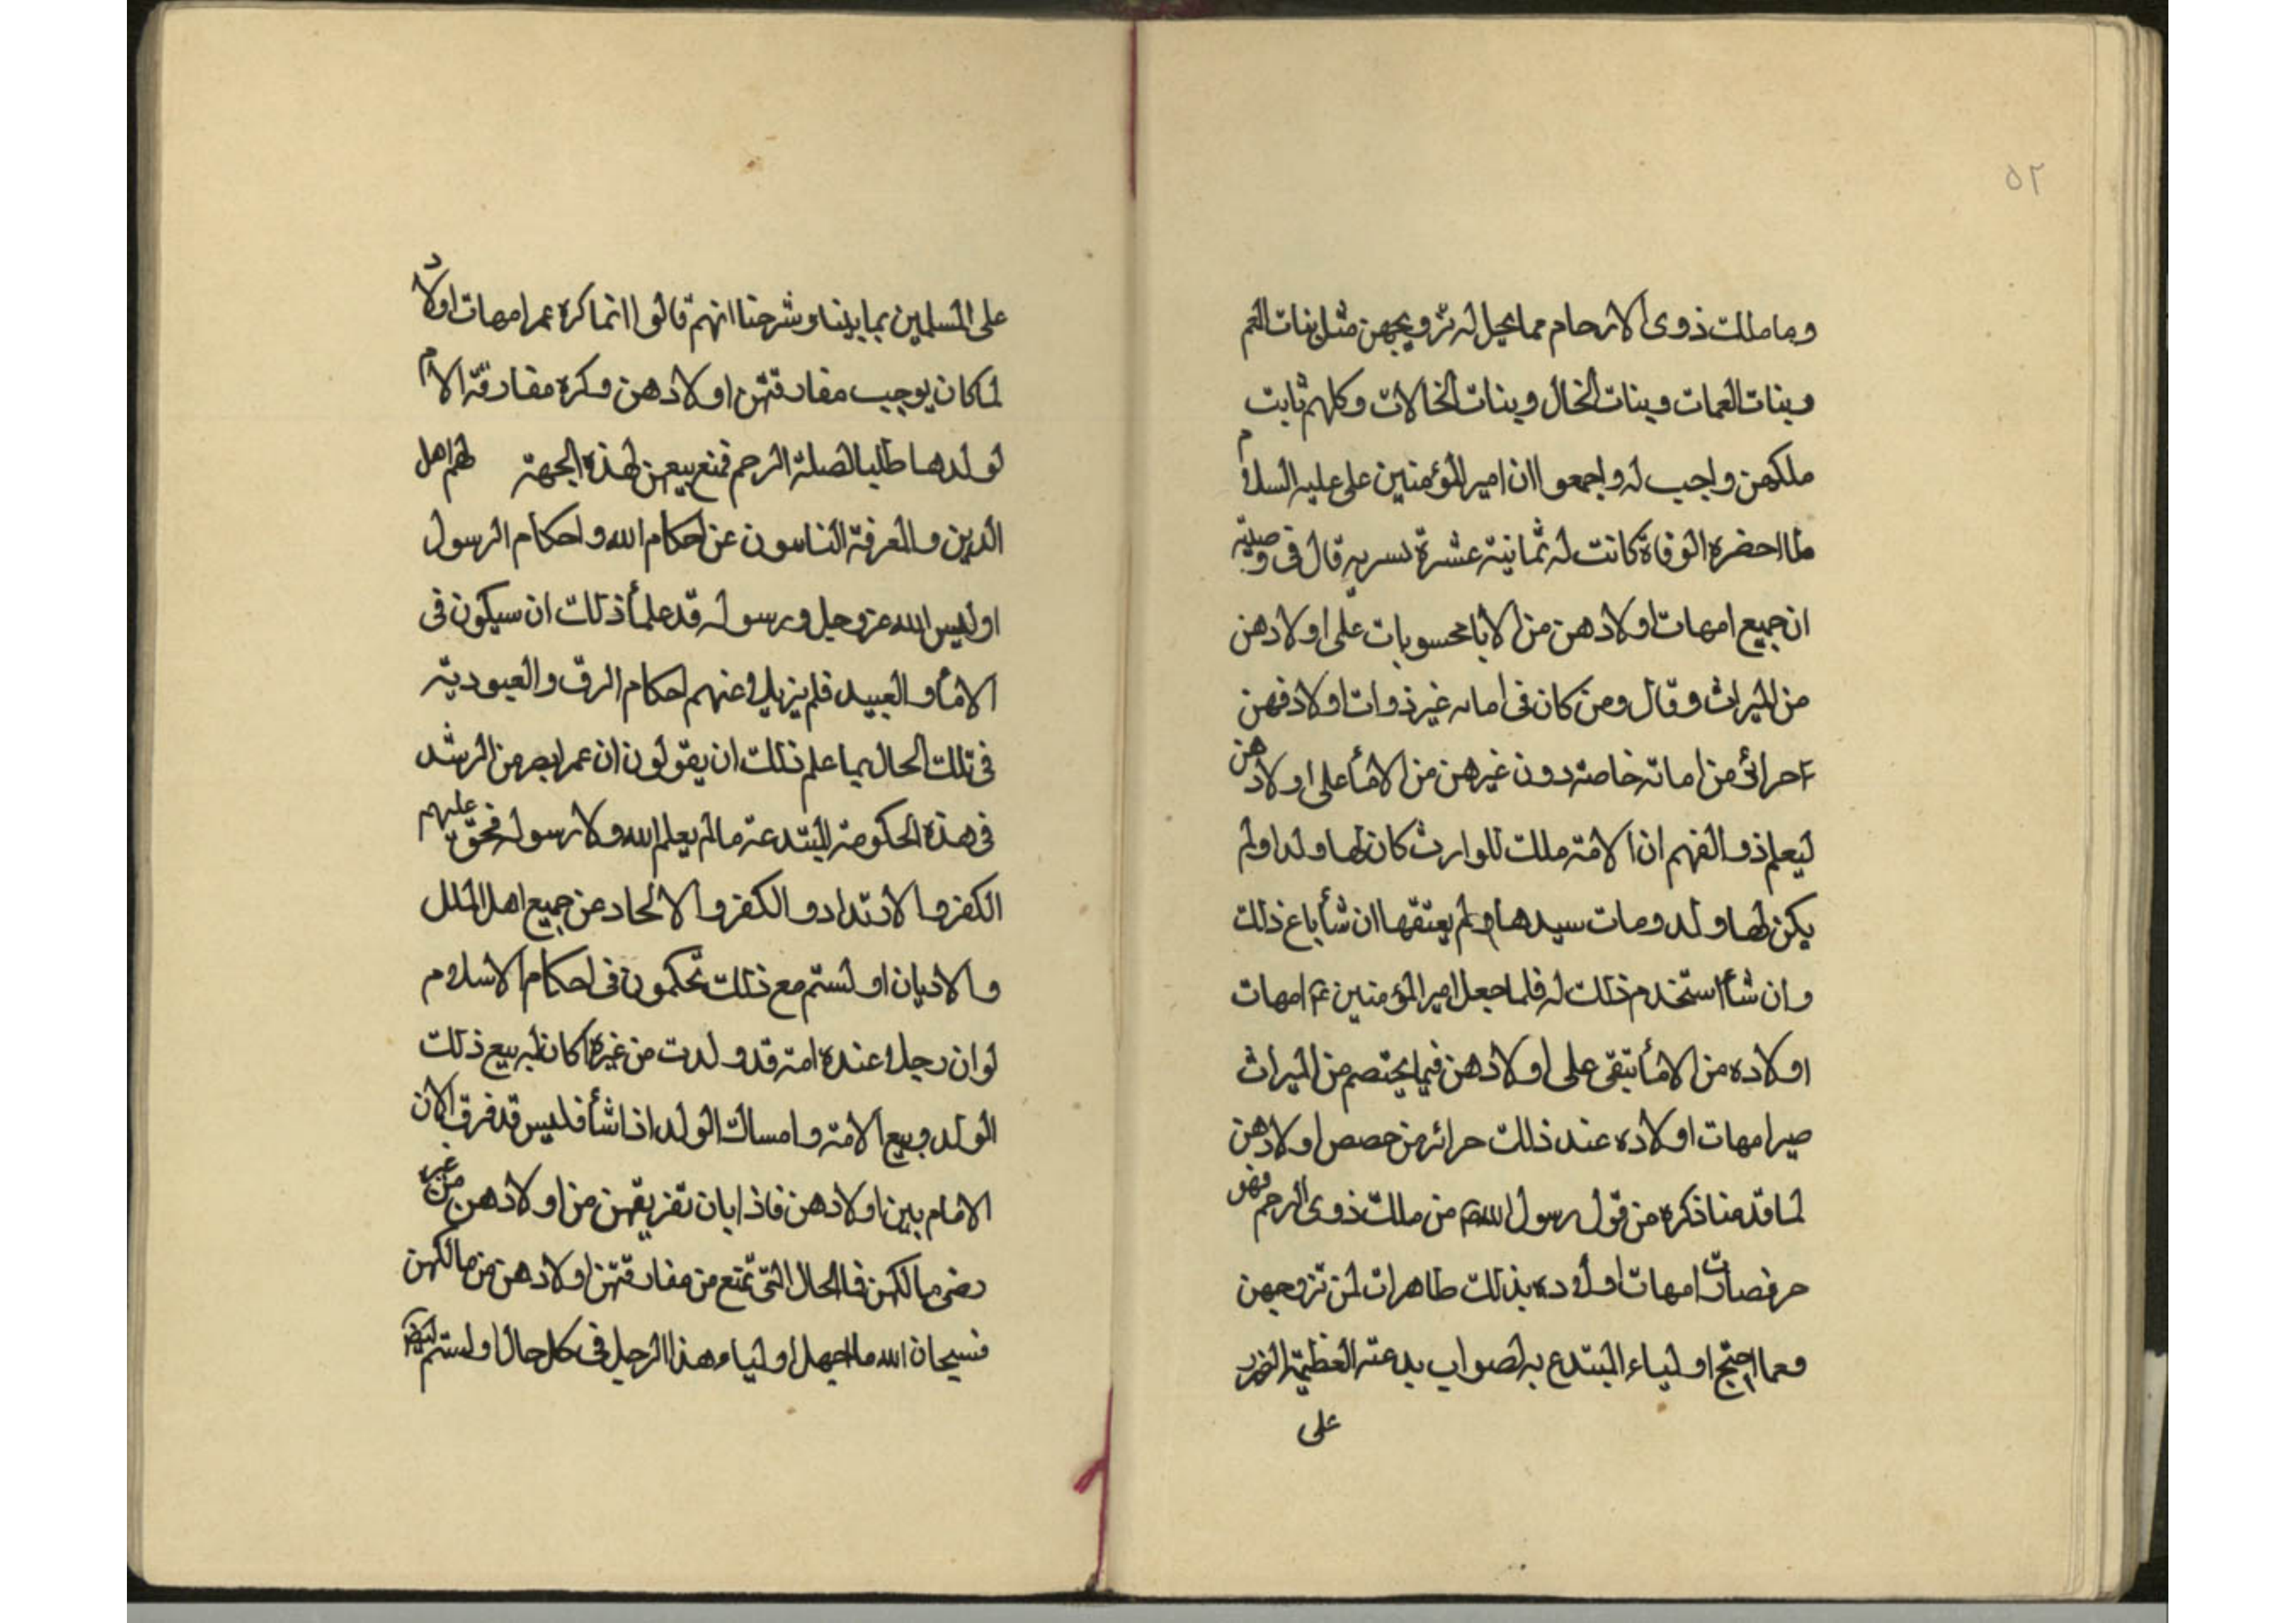 ٥٢
وما ملك ذوى الارحام مما يحل له تزويجهن مثل بنات العم
وبنات العمات وبنات الخال وبنات الخالات وكلهم ثابت
ملكهن واجب له واجمعوا ان امير المؤمنين على عليه السلام
لما احضره الوفاة كانت له ثمانية عشرة سريه قال فى وصيته
ان جميع امهات اولادهن من الابا محسوبات على اولادهن
من الميراث وقال ومن كان فى امائه غير ذوات اولاد فهن
حرائر من امائه خاصة دون غيرهن من الامأ على اولادهن
ليعلم ذو الفهم ان الامة ملك للوارث كان لها ولد او لم
يكن لها ولد ومات سيدها ولم يعتقها ان شأ باع ذلك
وان شأ استخدم ذلك له فلما جعل امير المؤمنين ع امهات
اولاده من الامأ تبقى على اولادهن فيما يختصم من الميراث
صير امهات اولاده عند ذلك حرائر من حصص اولادهن
لما قدمنا ذكره من قول رسول الله ص من ملك ذوى الرحم فهو
حر فصارت امهات اولاده بذلك طاهرات لمن تزوجهن
ومما احتج اولياء المبتدع به لصواب بدعته العظيمة الضرر
على
على المسلمين بما بينا وشرحنا انهم قالوا انما كره عمر امهات اولاد
لما كان يوجب مفارقتهن اولادهن وكره مفارقة الام
لولدها طلبا لصلة الرحم فمنع بيعهن لهذه الجهة لهم اهل
الدين والمعرفة الناسون عن احكام الله واحكام الرسول
اوليس الله عز وجل ورسوله قد علما ذلك ان سيكون فى
الامأ والعبيد فلم يزيلا عنهم احكام الرق والعبودية
فى تلك الحال بما علم ذلك ان يقولون ان عمر ابصر من الرشد
فى هذه الحكومة المبتدعة مالم يعلم الله ولا رسوله فحق عليهم
الكفر والارتداد والكفر والالحاد عن جميع اهل الملل
والاديان اولستم مع ذلك تحكمون فى احكام الاسلام
لو ان رجلا عنده امة قد ولدت من غيره كان له بيع ذلك
الولد وبيع الامة وامساك الولد اذا شأ فليس قد فرق الان
الامام بين اولادهن فاذا بان تفريقهن من اولادهن من غير
رضى مالكهن فالحال التى تمنع من مفارقتهن اولادهن من مالكهن
فسبحان الله ما اجهل اولياء هذا الرجل فى كل حال اولستم